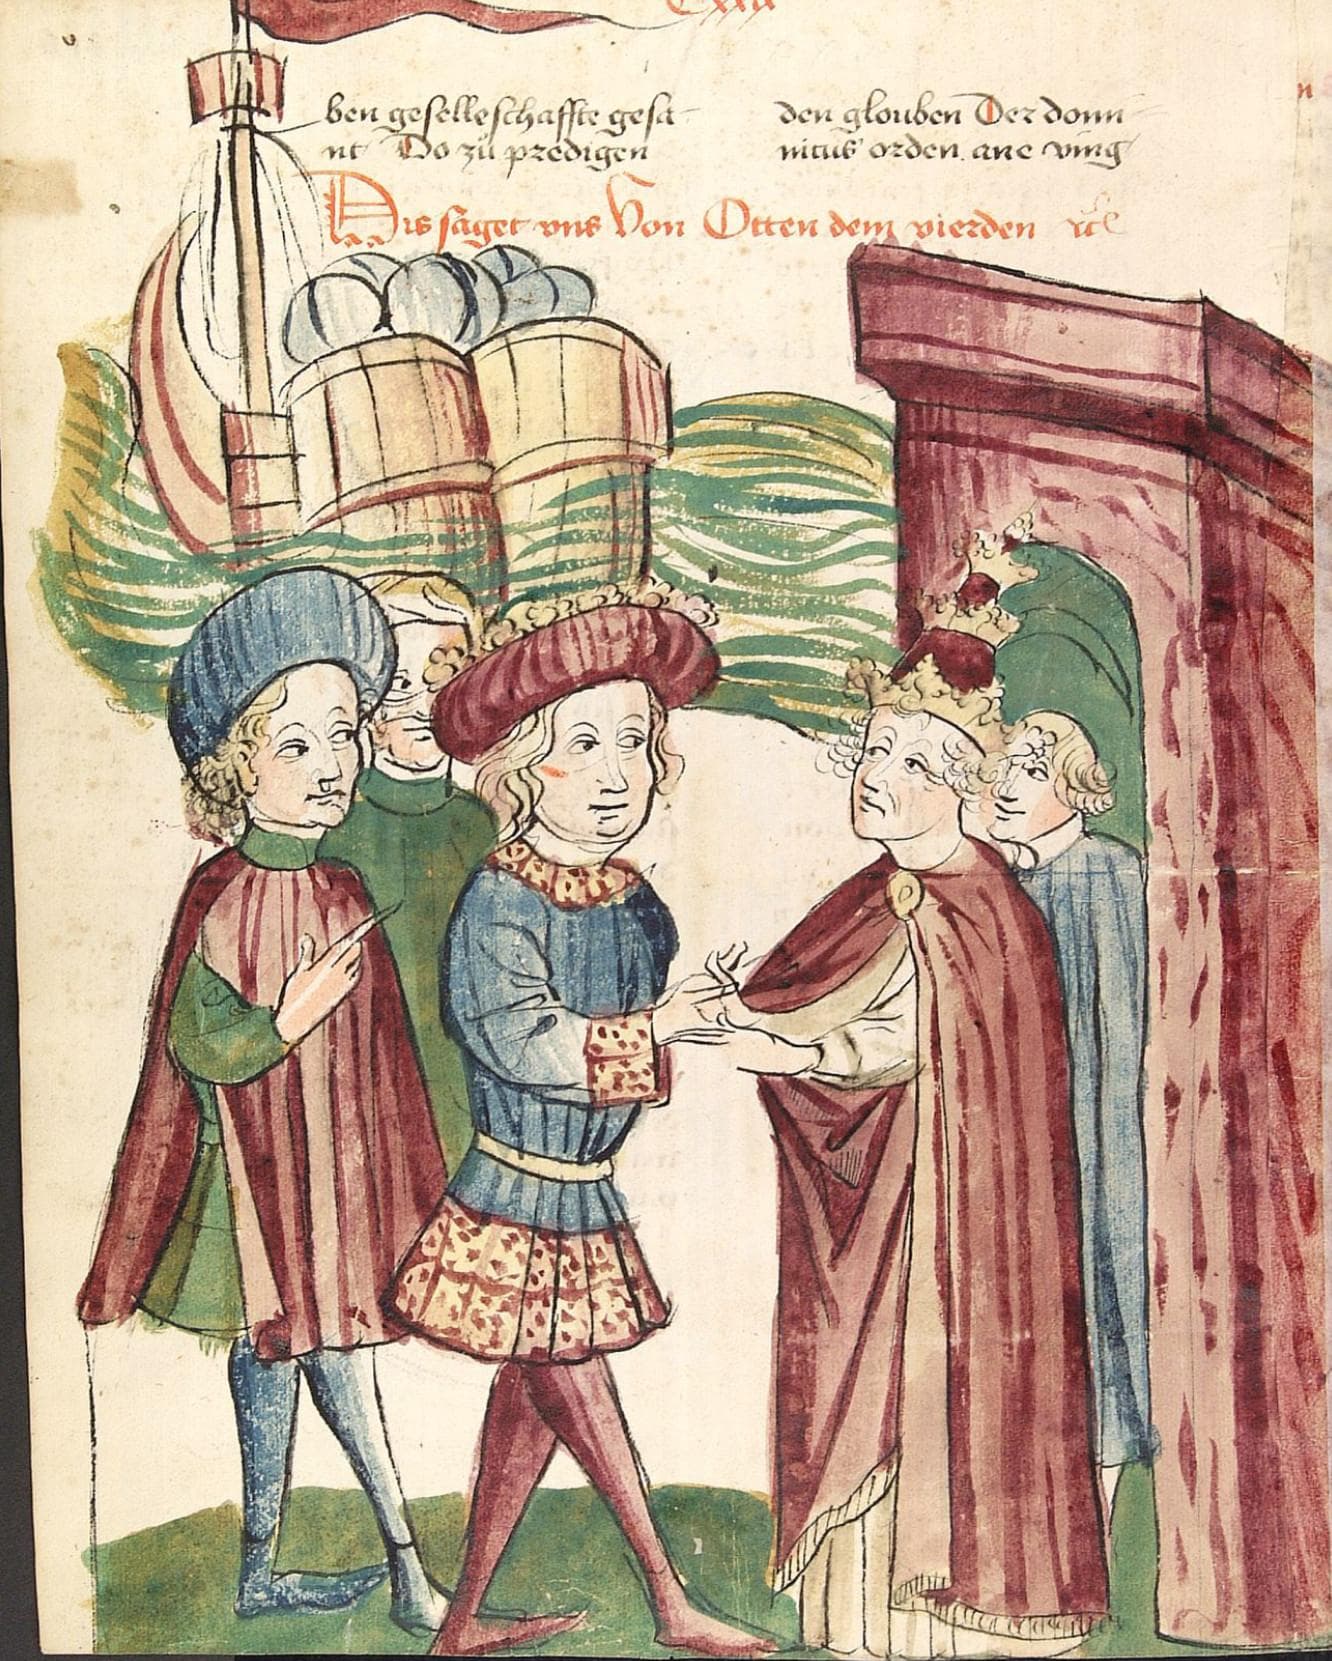 ben geselleschaffte gesa-
nt Do zů predigen
den glouben Der domi-
nicus orden ane ving
Dis saget vns Von Otten dem vierden